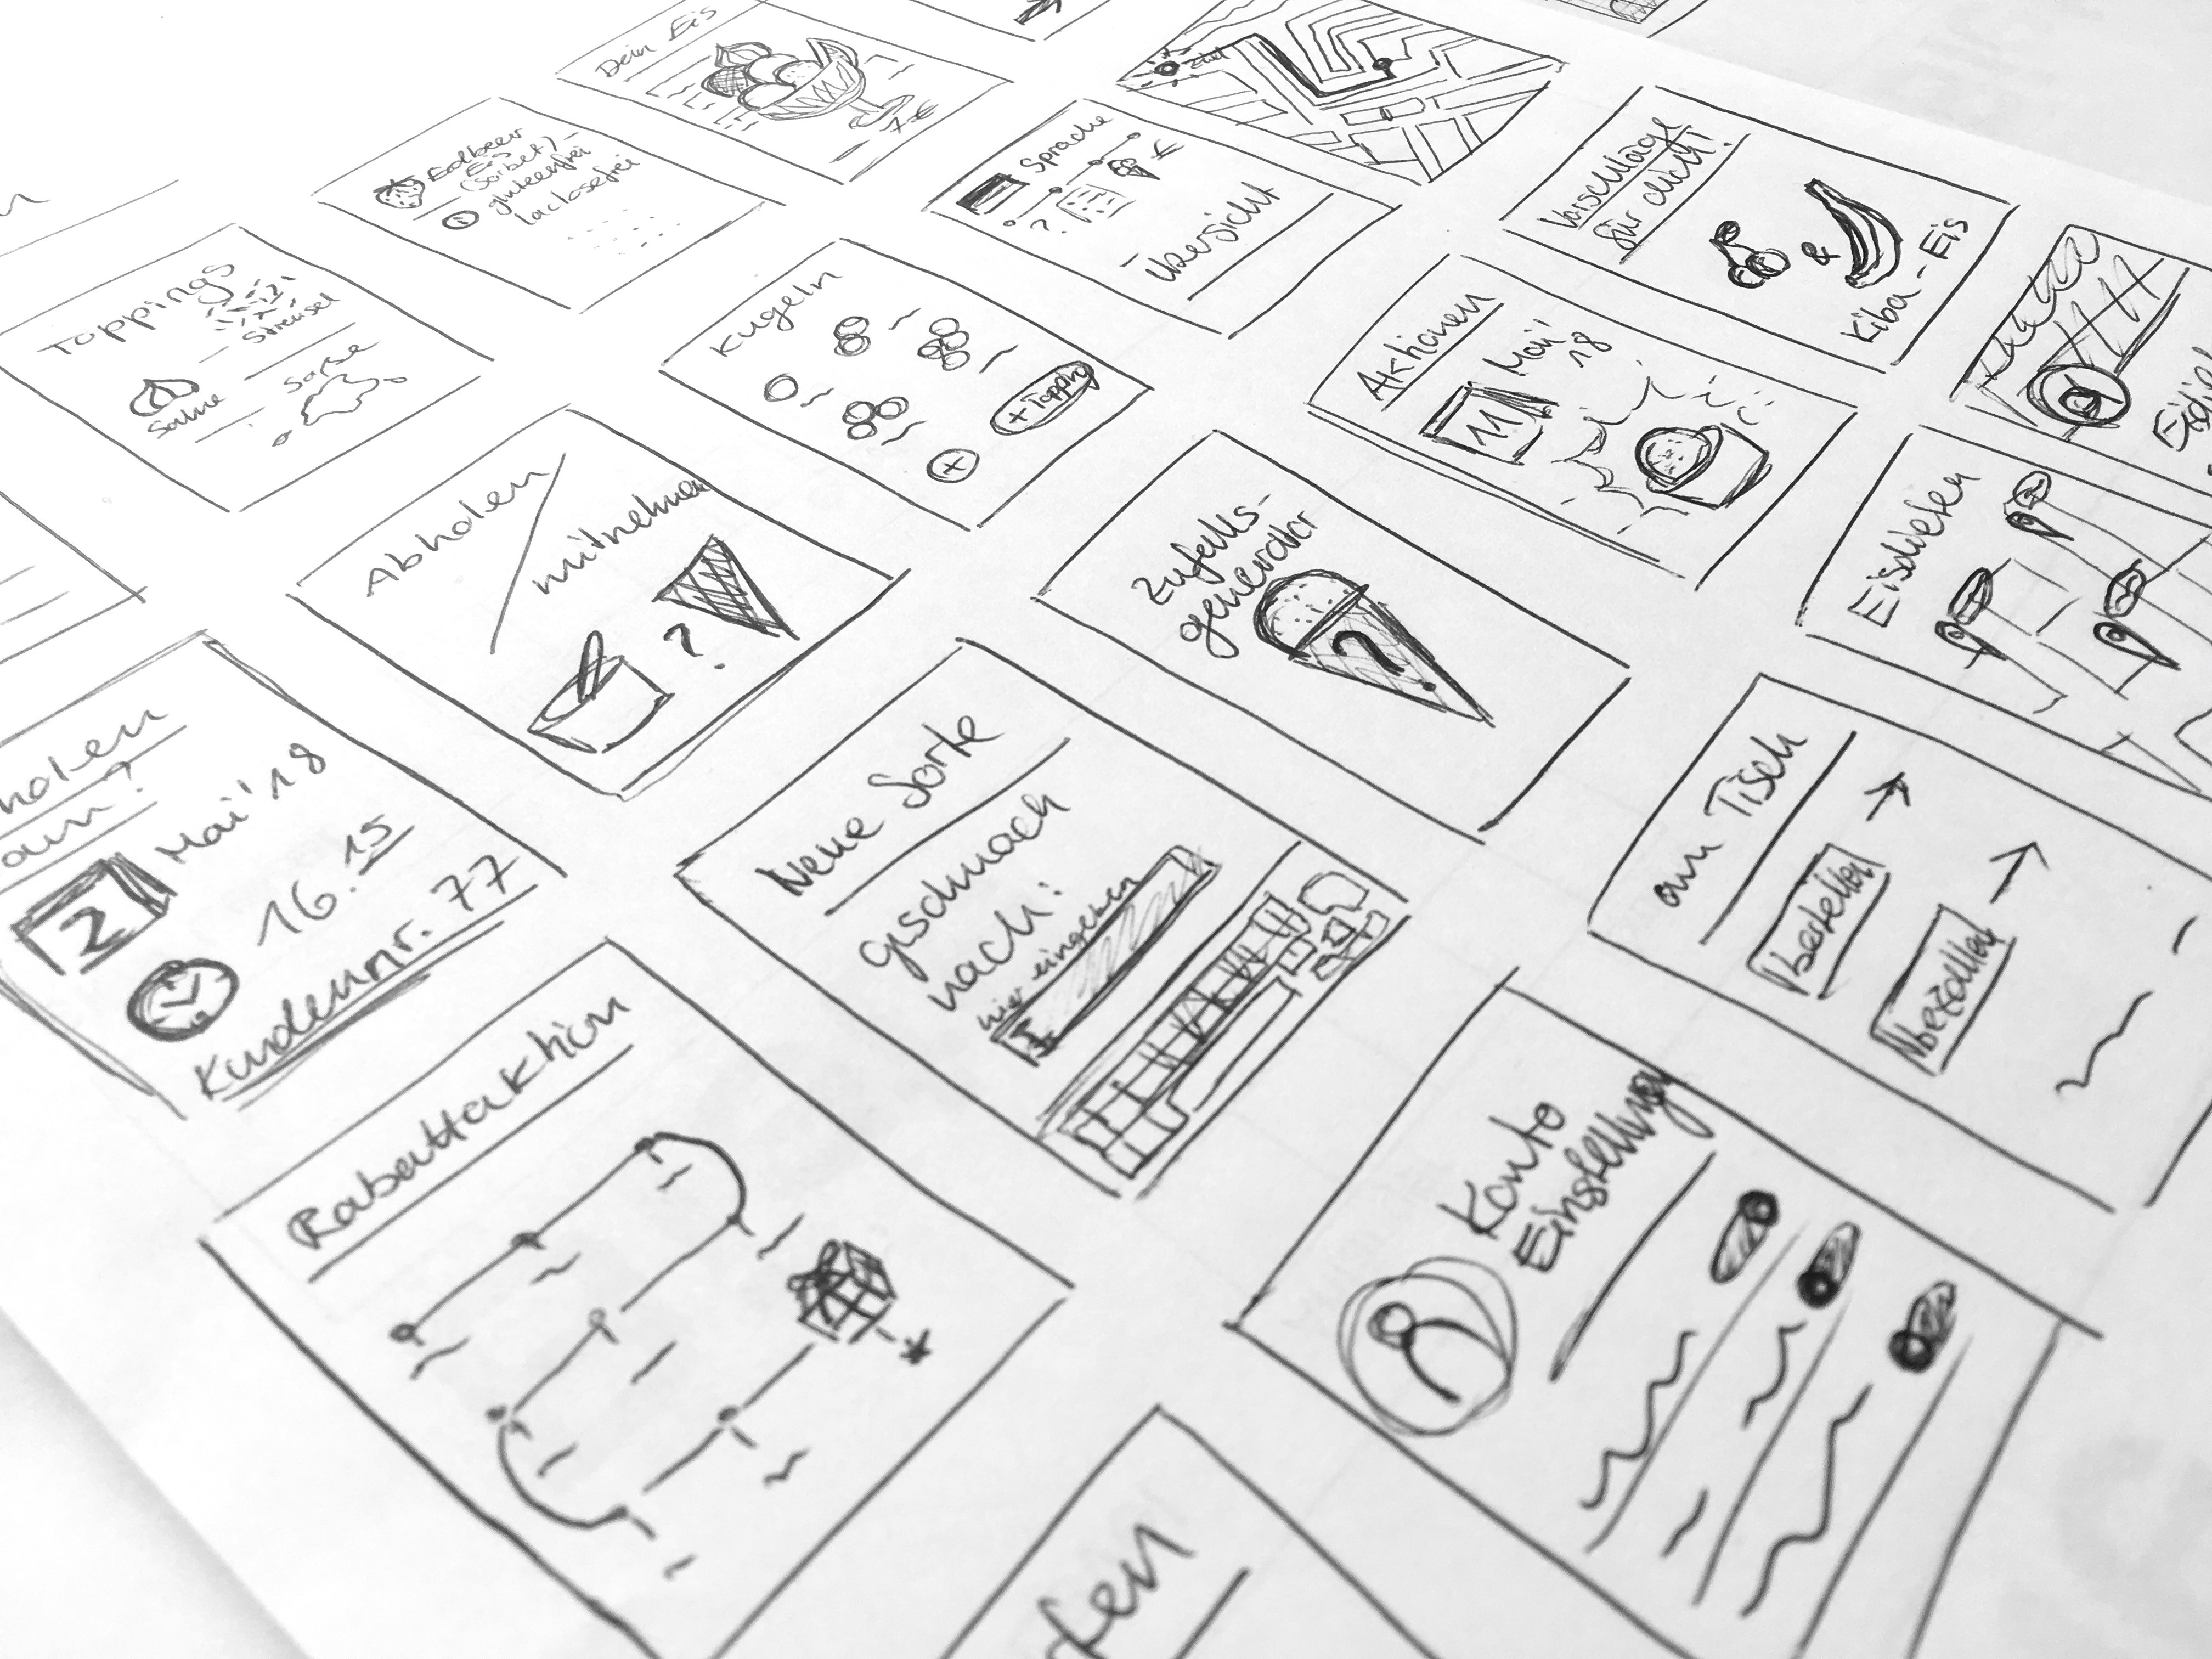 Dein Eis
7€
Ziel
Erdbeer
Eis
(Sorbet)
glutenfrei
lactosefrei
Sprache
€
?
Übersicht
Vorschläge
für dich!
&
Kiba-Eis
Toppings
Streusel
Soße
Sahne
Kugeln
+ Topping
+
Aktionen
Mai'
18
11
Eisdielen
Abholen /
mitnehmen
?
Zufalls-
generator
?
holen
2
Mai '18
16.15
Kundennr. 77
Neue Sorte
gschmack
nach:
hier eingeben
am Tisch
bestellen →
bezahlen →
Rabattaktion
Konto
Einstellung
fen